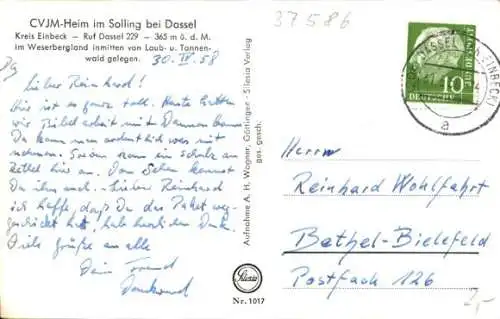 CVJM-Heim im Solling bei Dassel
Kreis Einbeck — Ruf Dassel 229 — 365 m ü. d. M.
im Weserbergland inmitten von Laub- u. Tannen-
wald gelegen.
30. IV. 58
Lieber Reinhard!
Hier ist es ganz toll. Heute hatten
wir Bibelarbeit mit
Du kann man ordentlich was mit
nehmen. an
hier an. Sehen kannst
Du ihn auch. Lieber Reinhard
ich hoffe, daß Du das Paket weg-
geschickt hast, hab herzlichen Dank.
Viele Grüße an alle
Dein Freund
Aufnahme A. H. Wagner, Göttingen - Silesia Verlag
ges. gesch.
Silesia
Nr. 1017
37586
DEUTSCHE BUNDESPOST
10
DASSEL
EINBECK
a
Herrn
Reinhard Wohlfahrt
Bethel-Bielefeld
Postfach 126
2,-